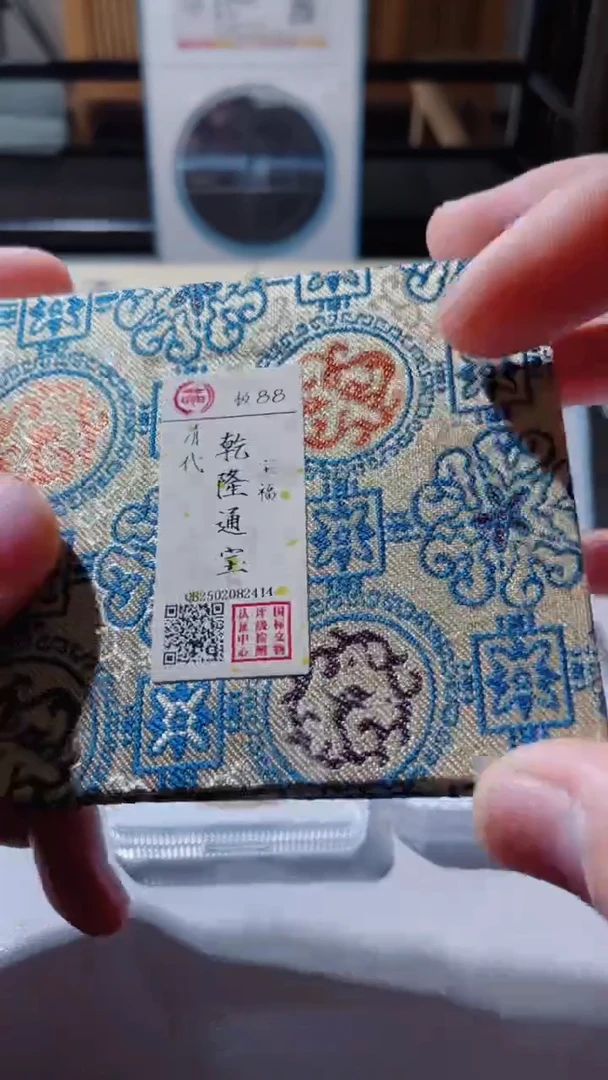 极88
清代
乾隆通宝
宝福
QB2502082414
国标文物
评级检测
认证中心